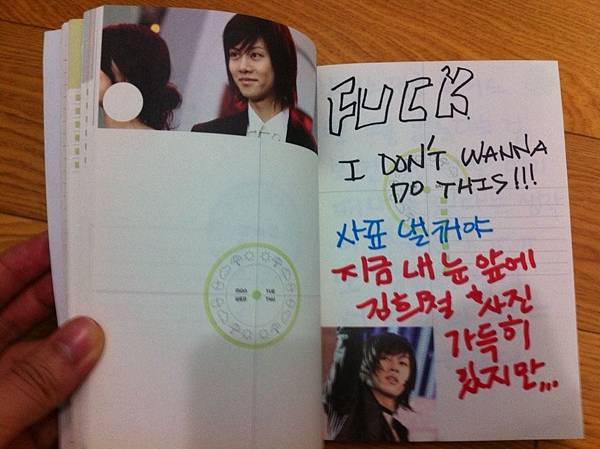 FUCK
I DON'T WANNA
DO THIS!!!
사표 낼거야
지금 내 눈 앞에
김희철 사진
가득히
있지만...
TUE
THU